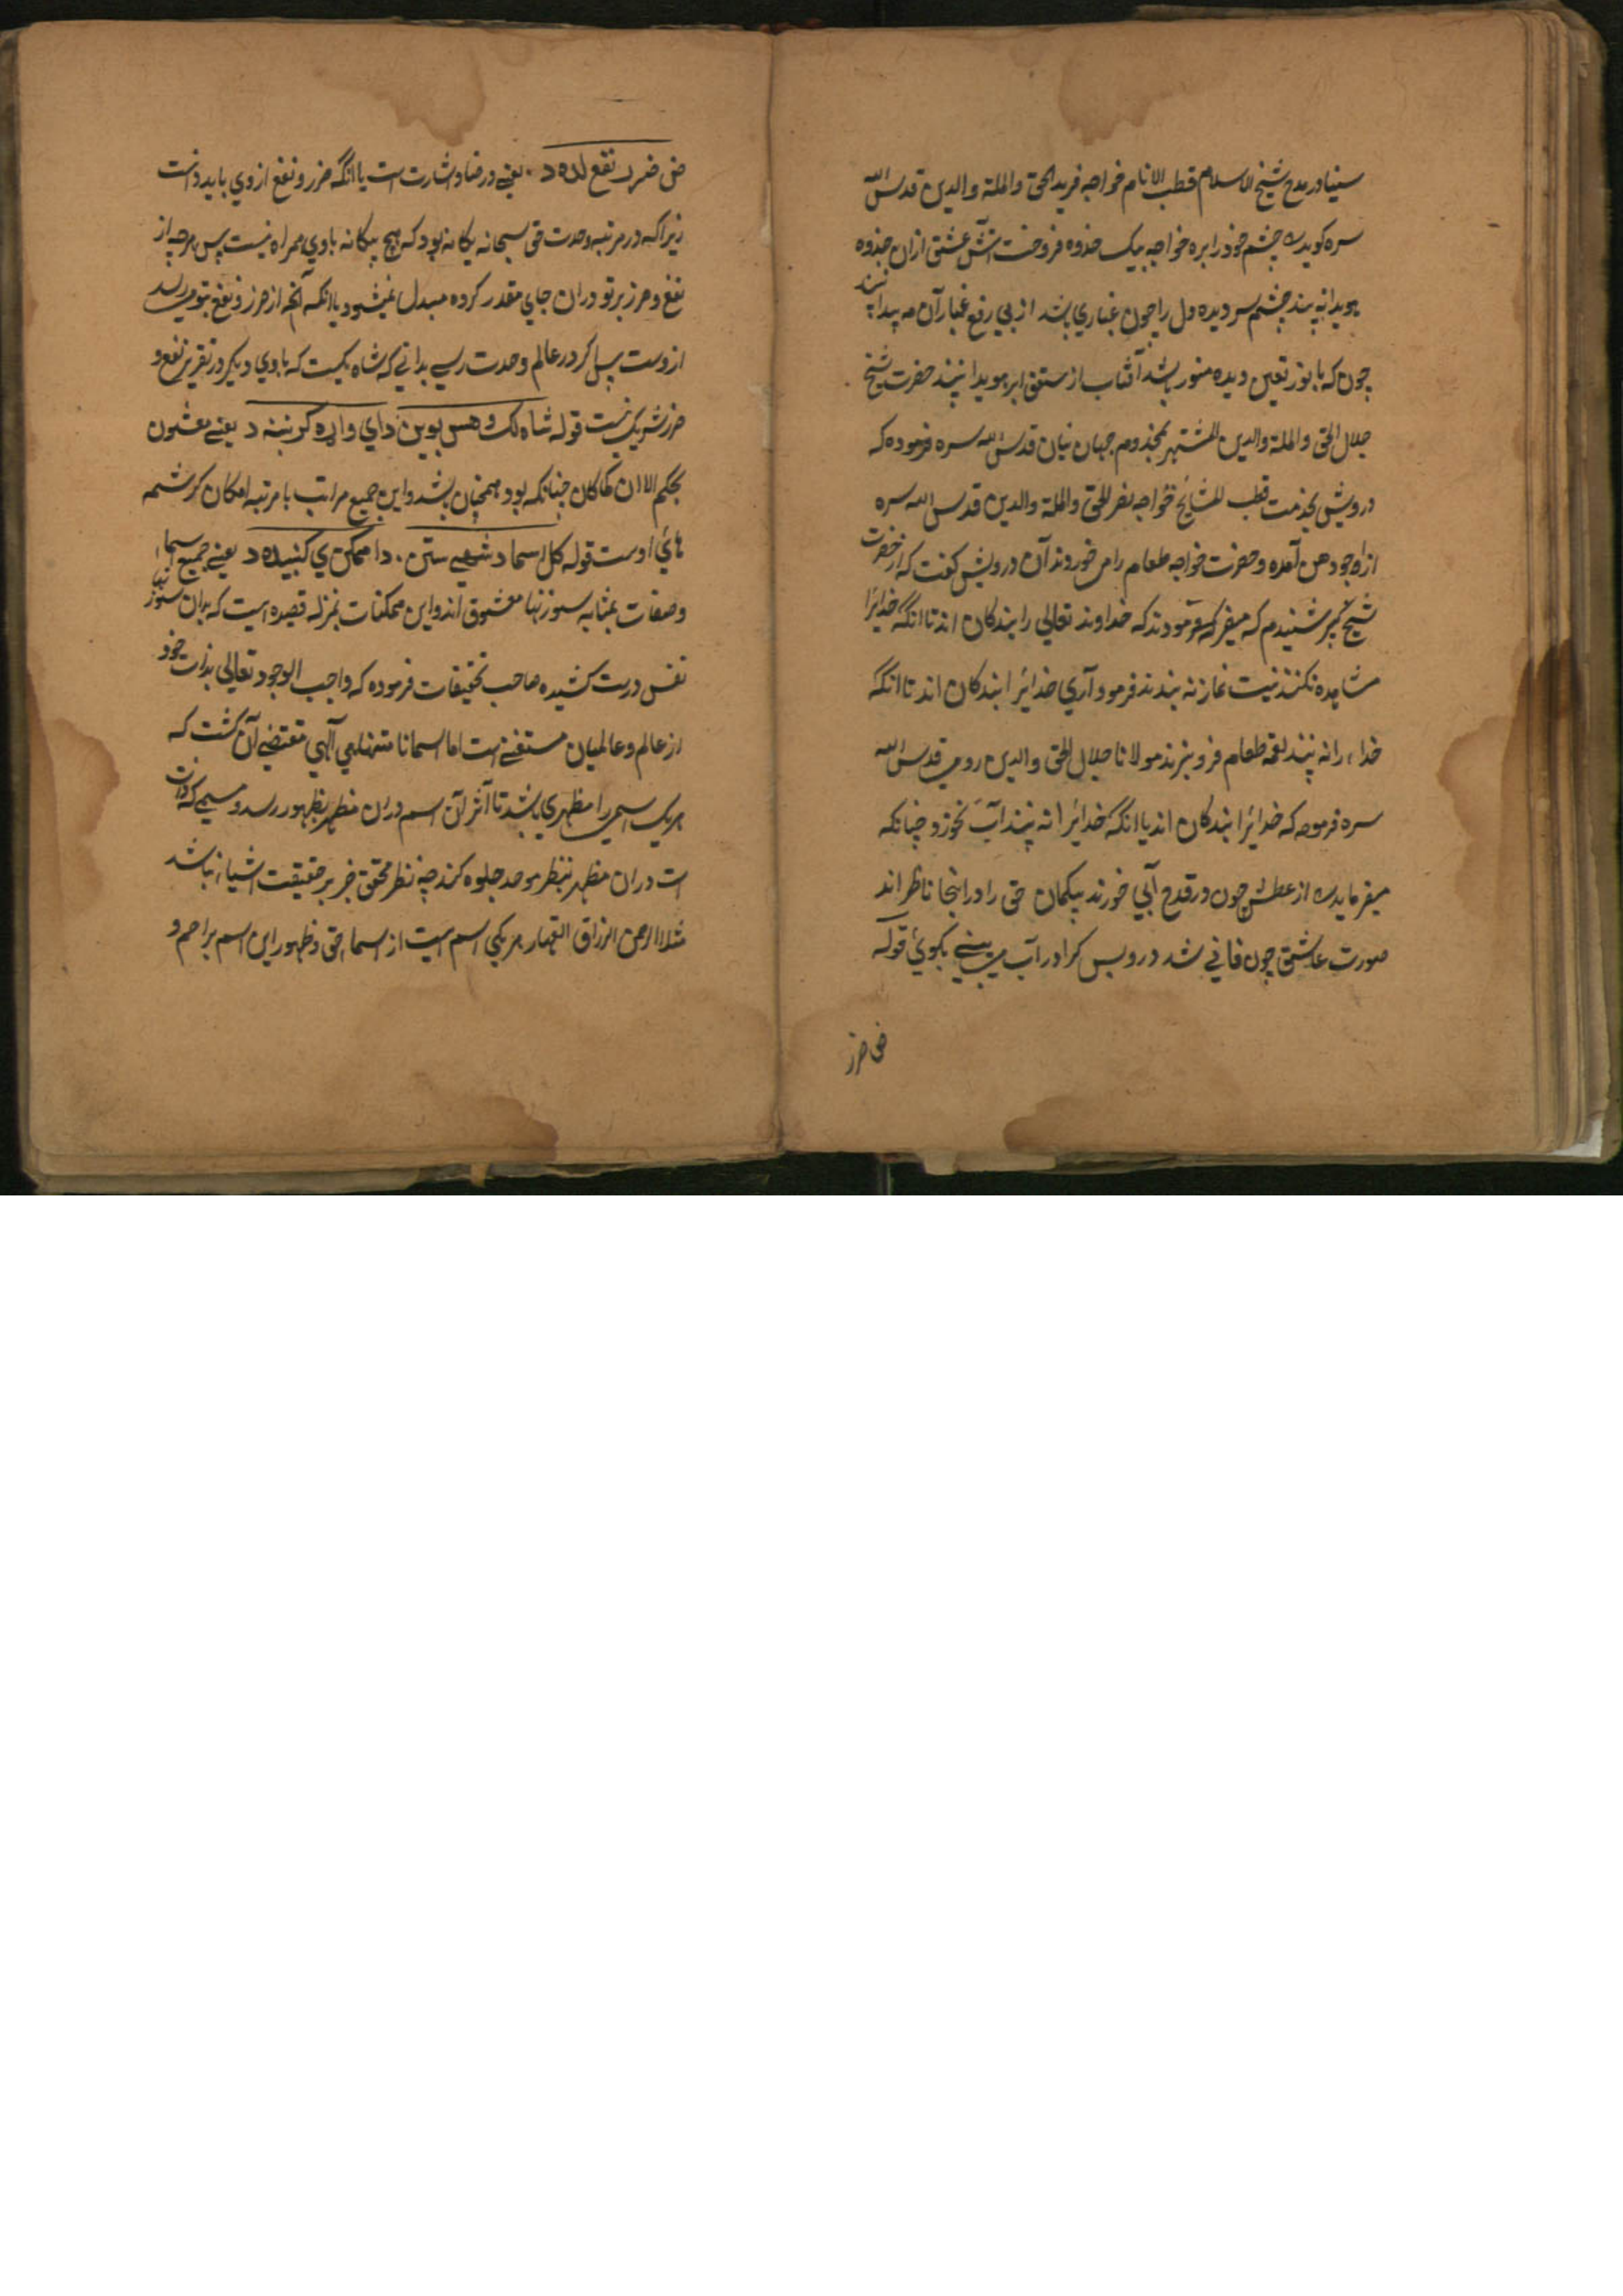 سینا در مدح شیخ الاسلام قطب الانام خواجه فرید الحق والملة والدین قدس الله
سره کوید چشم خود را بره خواجه بیک جذوه فروخت آتش عشق ازان جذوه
هویدا نه بیند چشم سر دیده دل را چون غباری باشد از پی رفع غبار آن مه پیدا بیند
چون که با نور تعین دیده منور باشد آفتاب از ابر هویدا بیند حضرت شیخ
جلال الحق والملة والدین المشتهر بمخدوم جهانیان قدس الله سره فرموده که
درویش بخدمت قطب المشایخ خواجه نصر الحق والملة والدین قدس الله سره
از اجودهن آمده و حضرت خواجه طعام را می خوردند آن درویش کفت که از حضرت
شیخ کبیر شنیدم که میفرمودند که خداوند تعالی را بندکان اند تا انکه خدایرا
مشاهده نکنند نیت نماز نه بندند فرمود آری خدایرا بندکان اند تا انکه
خدا را نه بینند لقمه طعام فرو نبرند مولانا جلال الحق والدین رومی قدس الله
سره فرموده که خدایرا بندکان اند یا انکه خدایرا نه بینند آب نخورند چنانکه
میفرماید از عطش چون در قدح آبی خورند بیکمان حق را در انجا ناظر اند
صورت عاشق چون فانی شد درو پس کرا در آب می بینی بکوی قوله
ضی ضرر
ضی ضرر نفع لاه د یعنی در ضاد اشارت است یا انکه ضرر و نفع از وی باید دانست
زیرا که در مرتبه وحدت حق سبحانه یکانه بود که هیچ بیکانه با وی همراه نیست پس هرچه از
نفع و ضرر بر تو دران جای مقدر کرده مبدل نمیشود یا انکه آنچه از ضرر و نفع بتو میرسد
ازوست پس اکر در عالم وحدت رسی بدانی که شاه یکیست که با وی دیکر در تقریر نفع و
ضرر شریک نیست قوله شاه لک و هس بوین دای واره کر نینه د یعنی معشوق
بحکم الان کما کان چنانکه بود همچنان باشد و این جمیع مراتب با مرتبه امکان کرشمه
های اوست قوله کل اسما د شهی ستن دا ممکن ی کشیده د یعنی جمیع اسما
و صفات بمثابه سوزنها معشوق اند و این ممکنات بمنزله قصیده است که بدان سوزنها
نفس درست کشیده صاحب تحقیقات فرموده که واجب الوجود تعالی بذات خود
از عالم و عالمیان مستغنی است اما اسما نا متناهی آلهی مقتضی آن کشت که
هر یک اسمی را مظهری باشد تا آثر آن اسم دران مظهر بظهور رسد و مسمی که ذات
است دران مظهر بنظر موحد جلوه کند چه نظر محقق جز بر حقیقت اشیا نباشد
مثلا الرحمن الرزاق القهار هر یکی اسم است از اسماء حق و ظهور این اسم براحم و